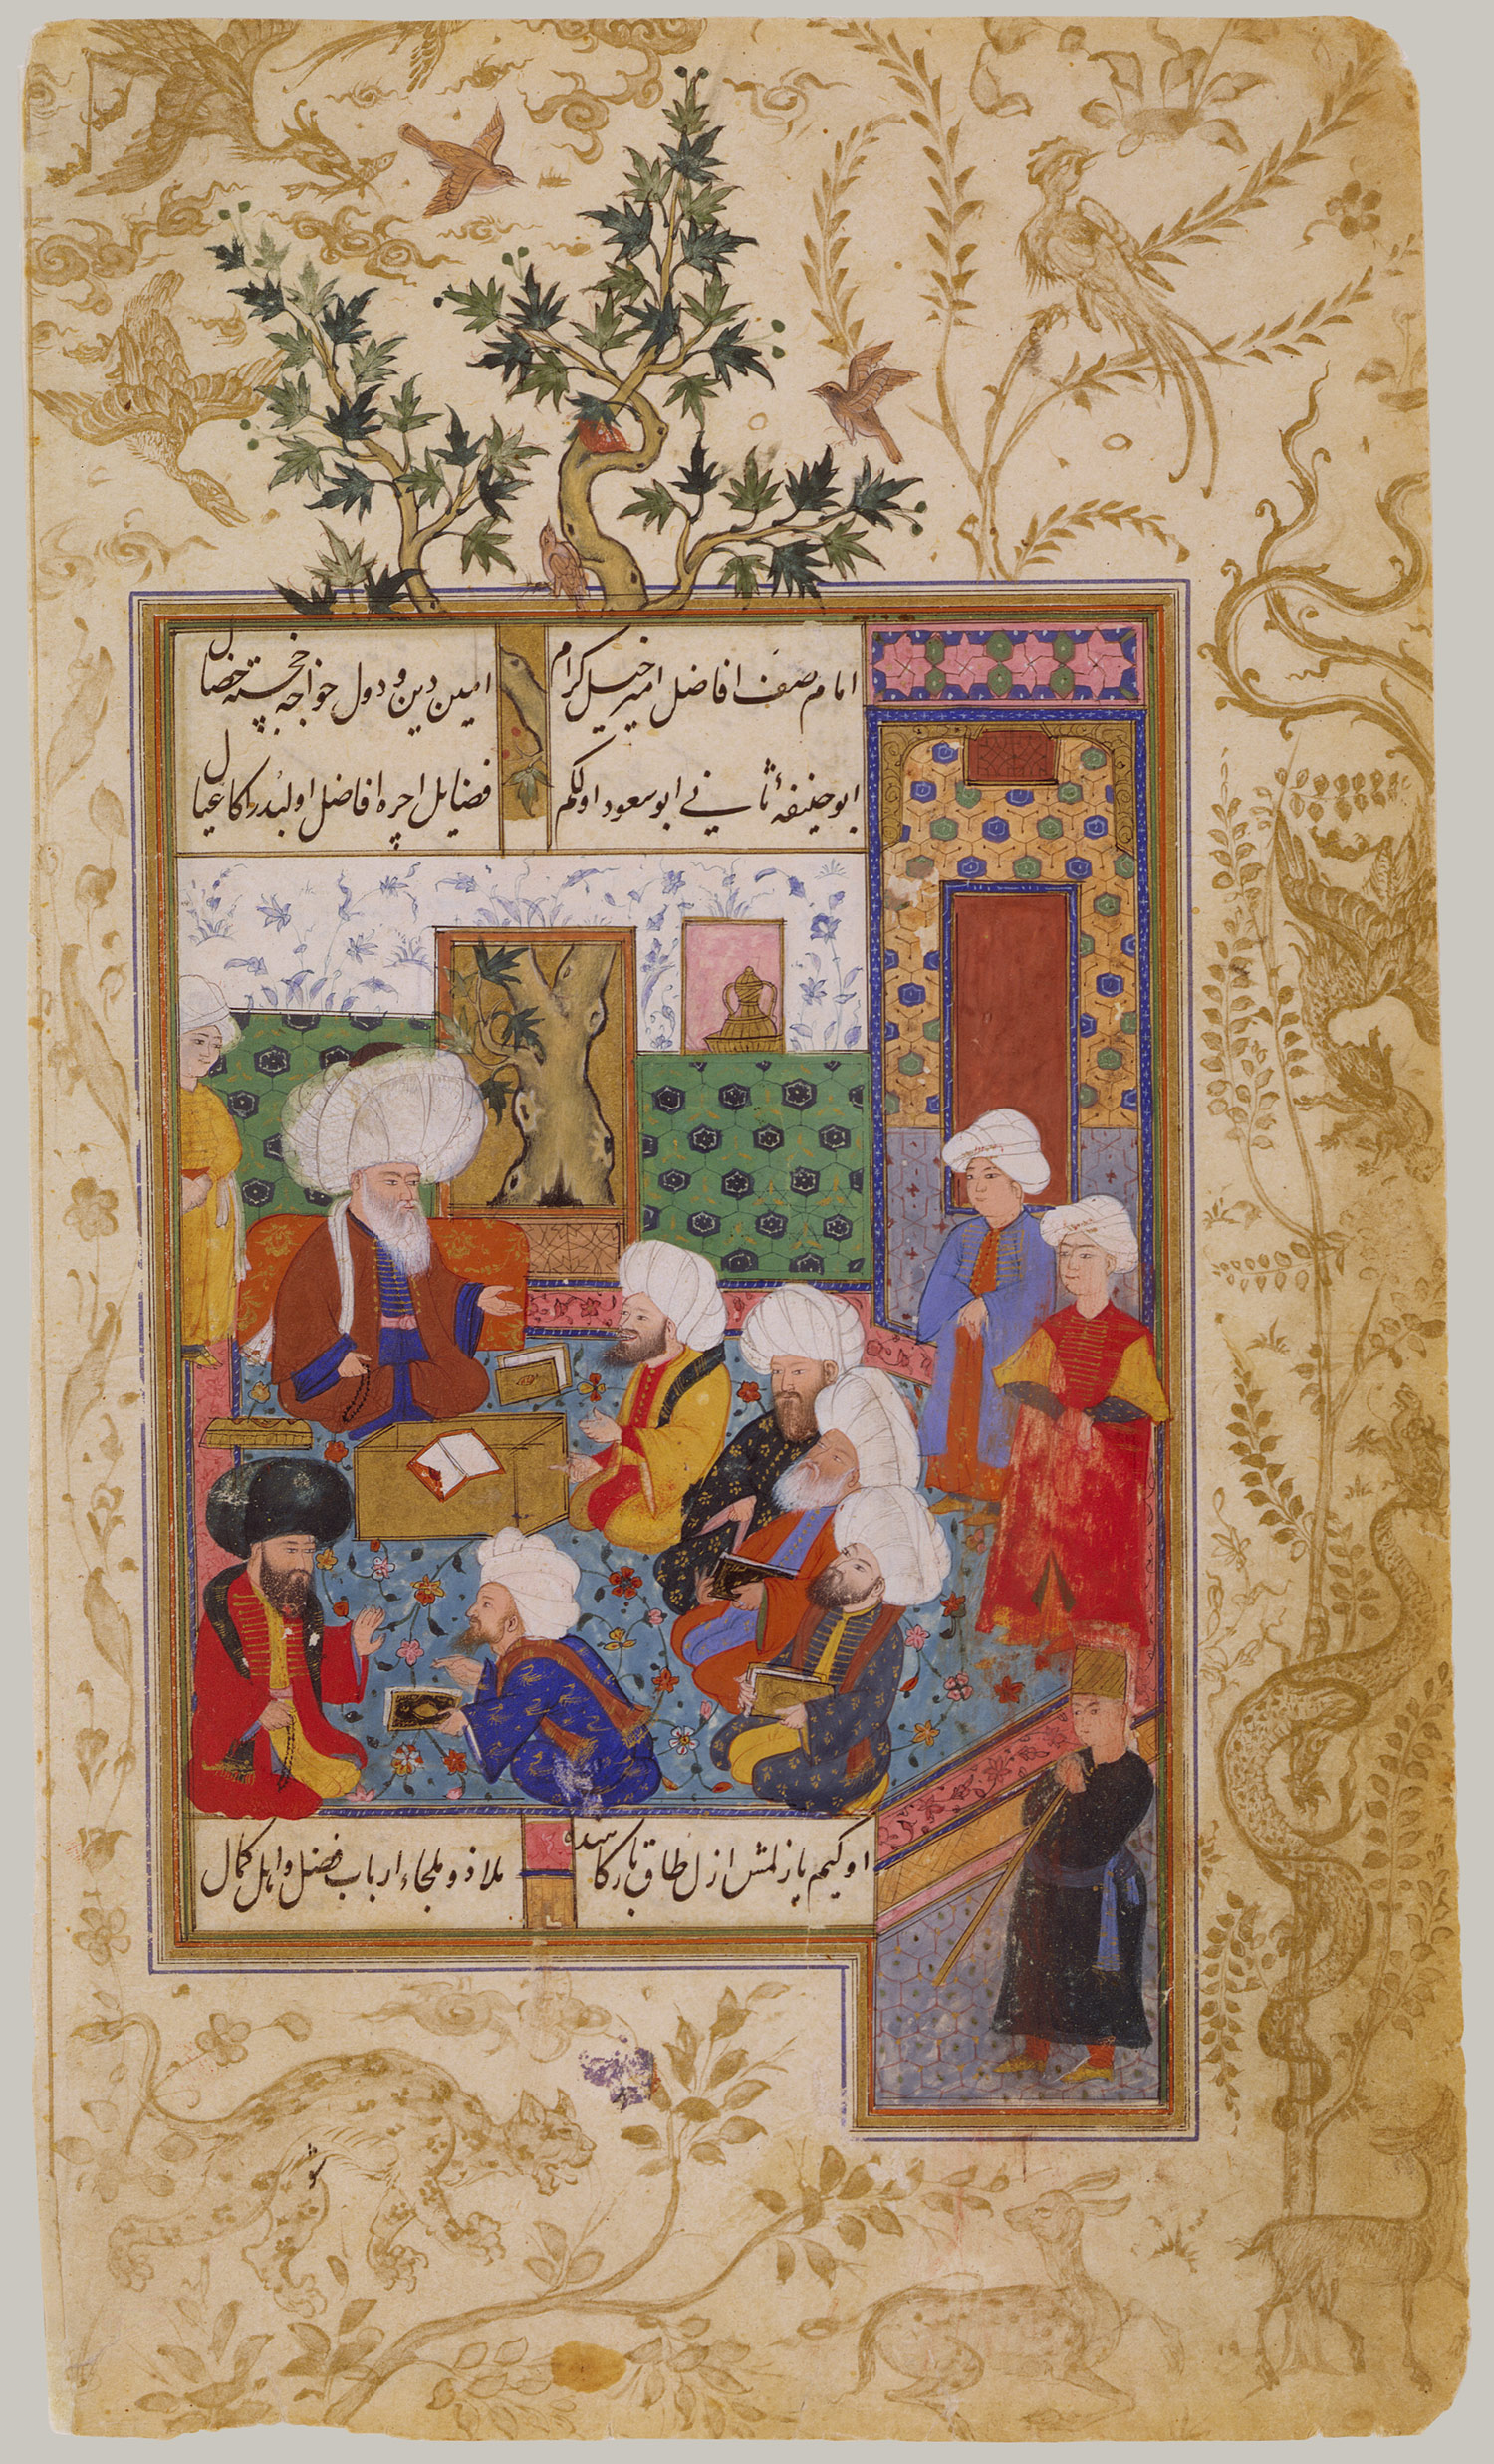 امام صف افاضل امیر خیل کرام امین دین و دول خواجه خجسته خصال
ابو حنیفهٔ ثانی ابو سعود اولکم فضایل اچره افاضل اولبدر اکا عیال
اوکیم یازلمش ازل طاق بارکاهنده ملاذ و ملجاء ارباب فضل و اهل کمال